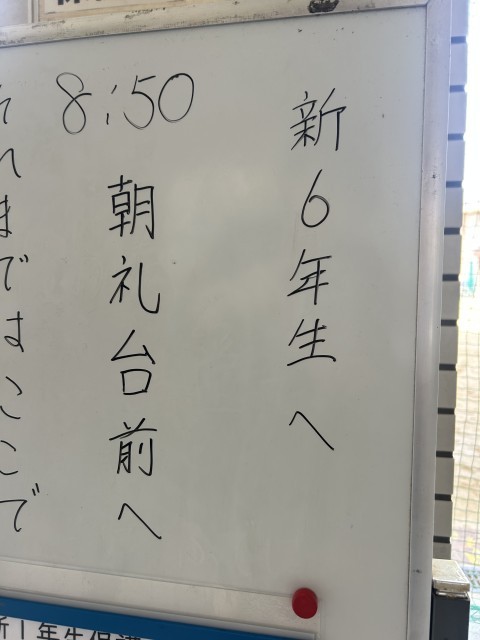 新6年生へ
8:50
朝礼台前へ
れまではここで
新1年生保護